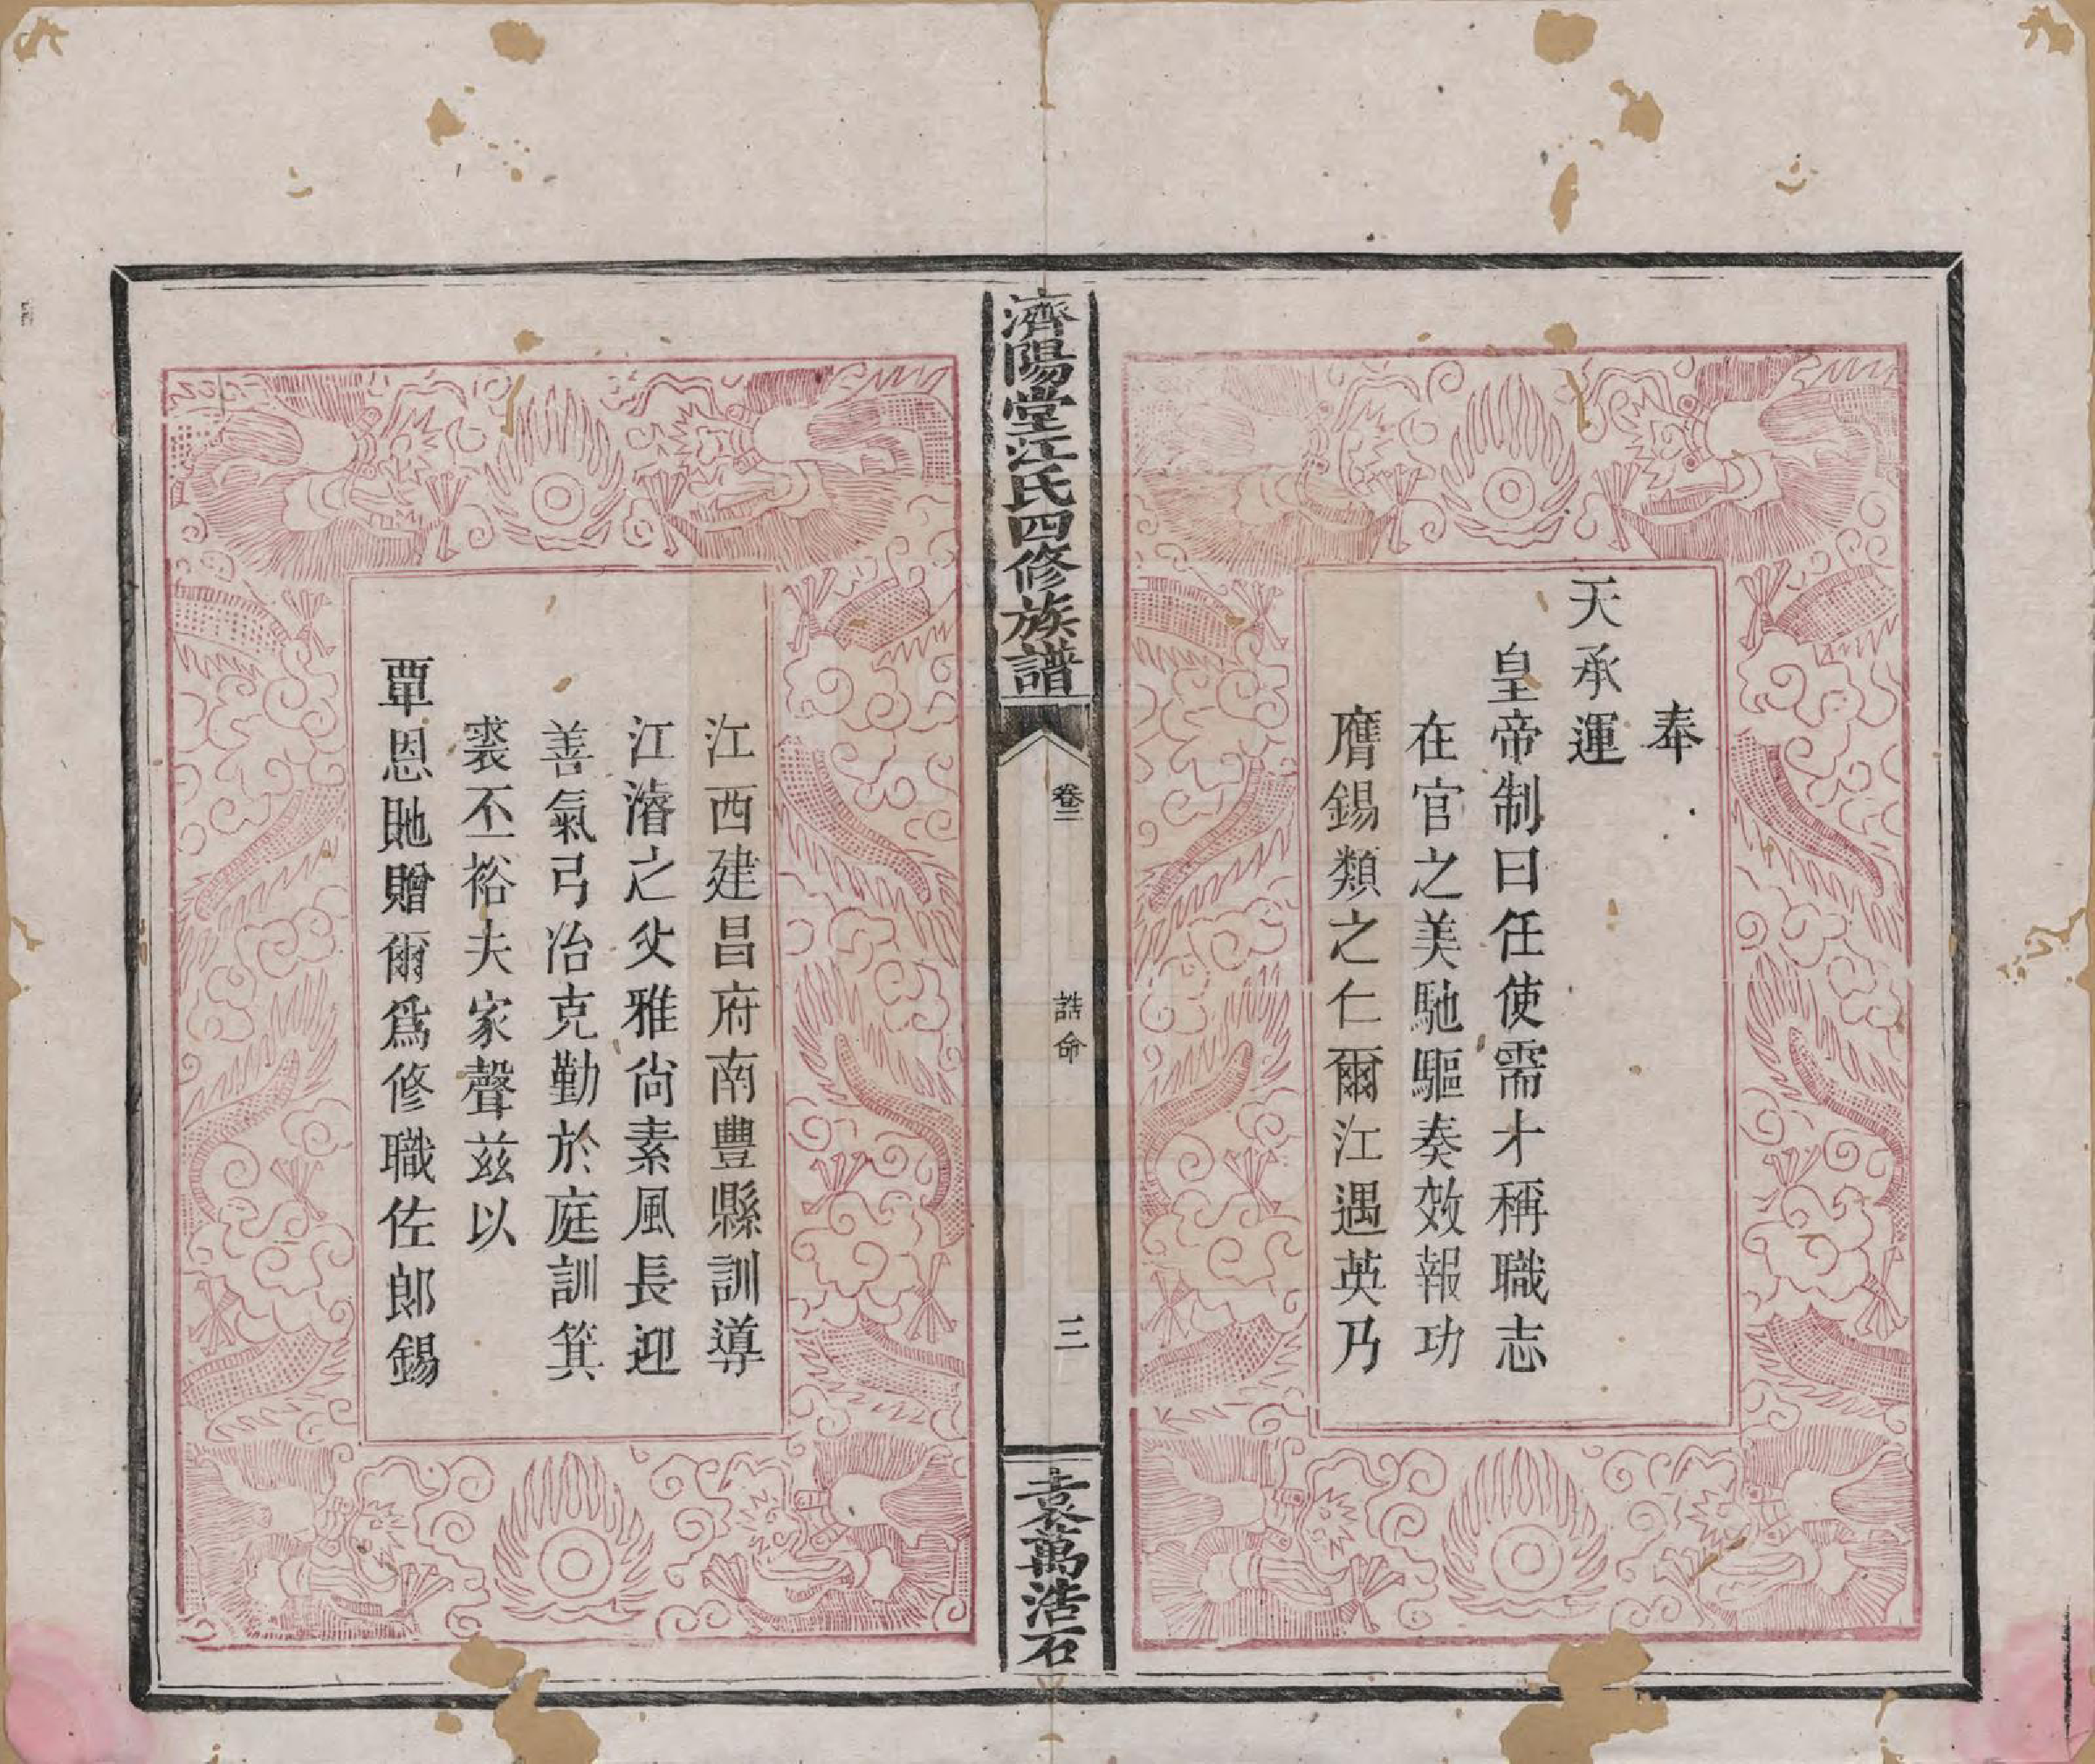 奉
天承運
皇帝制曰任使需才稱職志
在官之美馳驅奏效報功
膺錫類之仁爾江遇英乃
濟陽堂江氏四修族譜
卷二
誥命
三
袁萬浩石
江西建昌府南豐縣訓導
江濬之父雅尙素風長迎
善氣弓冶克勤於庭訓箕
裘丕裕夫家聲兹以
覃恩貤贈爾爲修職佐郎錫